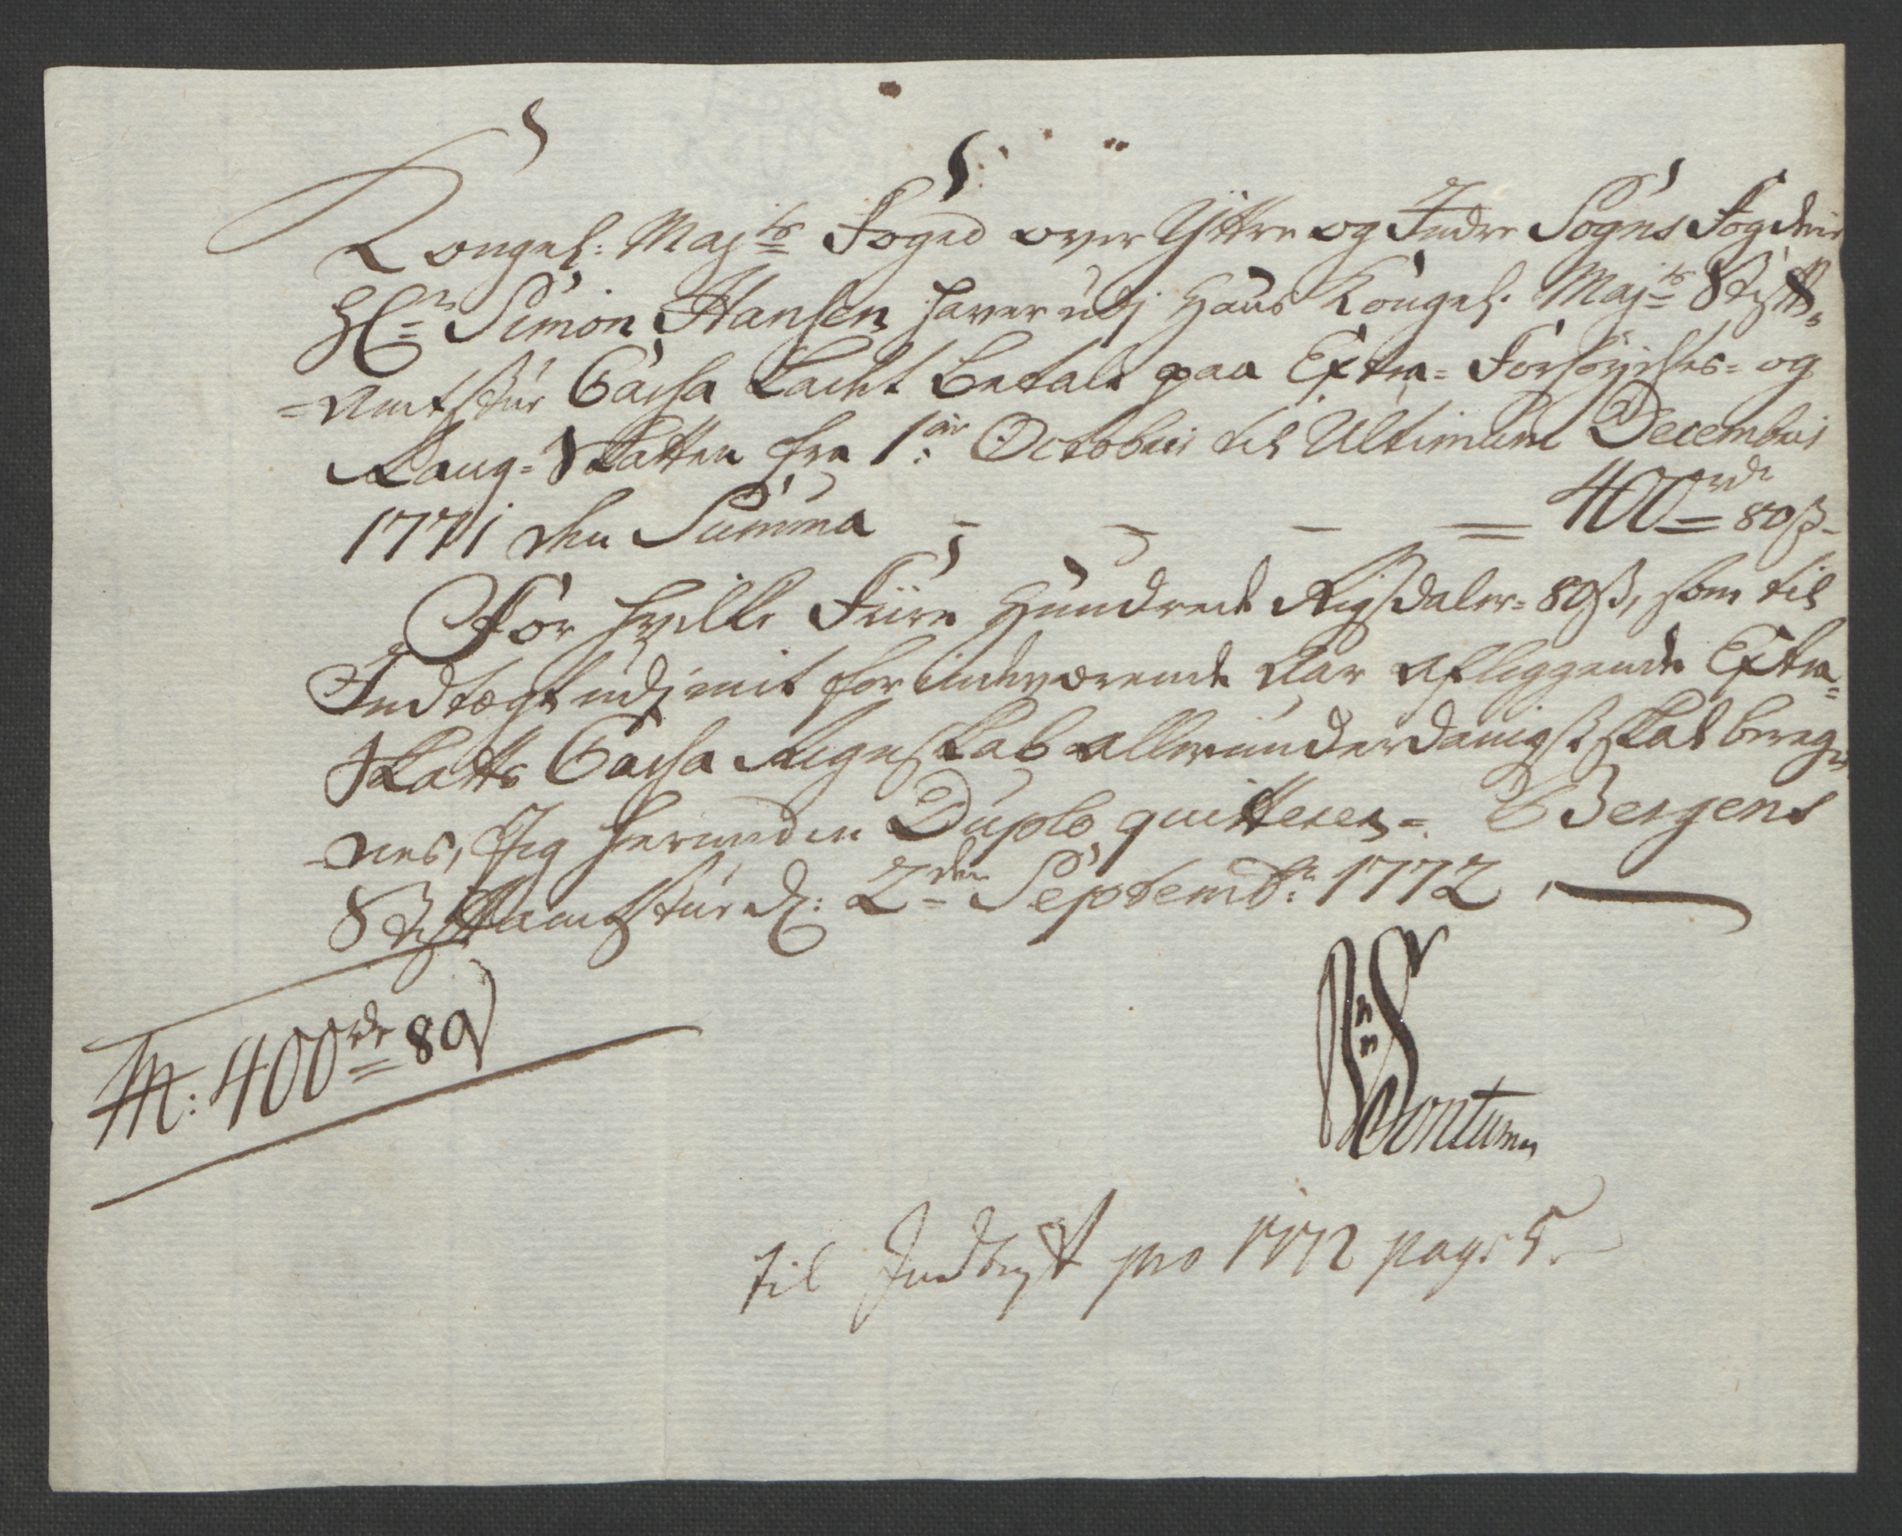 Kongel: Maj:ts Foged over Yttre og Indre Sogns Fogderie
Hr: Simon Hansen haver udj Hans Kongel: Maj:ts Stifts-
=Amtstue Cassa ladet betale paa Extra- Forhøyelses- og
Rang-Skatten fra 1:ste Octobris til Ultimum Decembris
1771 den Summa - - - = 400rdr 80ß-
For hvilke Fiire Hundrede Rigsdaler- 80ß, som til
Indtægt udj mit for indeværende Aar aflæggende Extra-
Skatts Cassa Regnskab allerunderdanigst skal bereg-
nes, Jeg herved in Duplo quitterer-. Bergens
Stiftamtstue d: 2den Septembr: 1772,
400rdr 80ß
til Indtægt pro 1772 pag: 5.